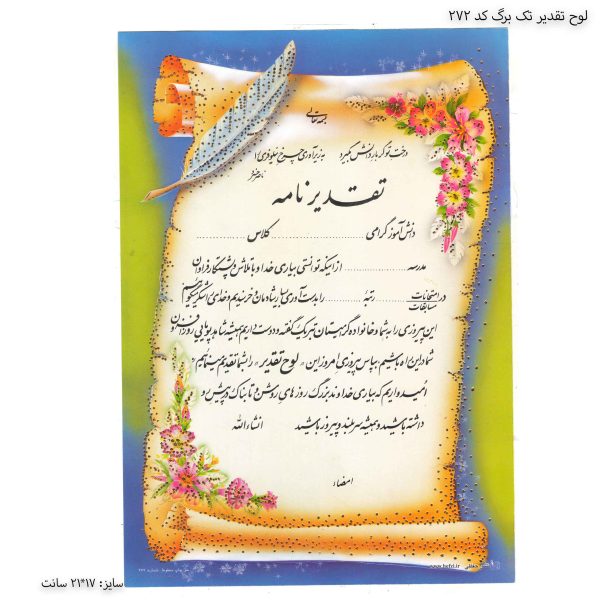 لوح تقدیر تک برگ کد ۲۷۲
بسمه تعالی
درخت تو گر بار دانش بگیرد به زیر آوری چرخ نیلوفری را
ناصر خسرو
تقدیرنامه
دانش آموز گرامی .................... کلاس ....................
مدرسه .................... از اینکه توانستی بیاری خدا و با تلاش و پشتکار فراوان
در امتحانات مسابقات رتبه .................... را بدست آوری بسیار شادمان و خرسندیم و خدای را شکر میگوئیم
این پیروزی را به شما و خانواده گرامیتان تبریک گفته و دوست داریم همیشه شاهد پویائی روزافزون
شما در این راه باشیم بپاس پیروزی امروز این «لوح تقدیر» را به شما تقدیم مینمائیم
امیدواریم که بیاری خداوند بزرگ روزهای روشن و تابناک در پیش رو
داشته باشید و همیشه سربلند و پیروز باشید انشاءالله
امضاء
www.hefzi.ir
سایز: ۱۷*۲۱ سانت